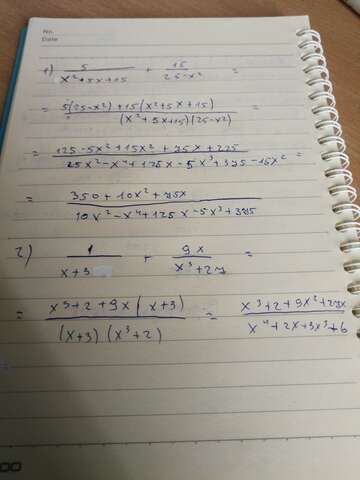 No.
Date
1) 5/(x²+5x+15) + 15/(25-x²) =
= (5(25-x²)+15(x²+5x+15))/((x²+5x+15)(25-x²)) =
= (125-5x²+15x²+75x+225)/(25x²-x⁴+125x-5x³+375-15x²) =
= (350+10x²+75x)/(10x²-x⁴+125x-5x³+375)
2) 1/(x+3) + 9x/(x³+27) =
= (x³+2+9x(x+3))/((x+3)(x³+2)) = (x³+2+9x²+27x)/(x⁴+2x+3x³+6)